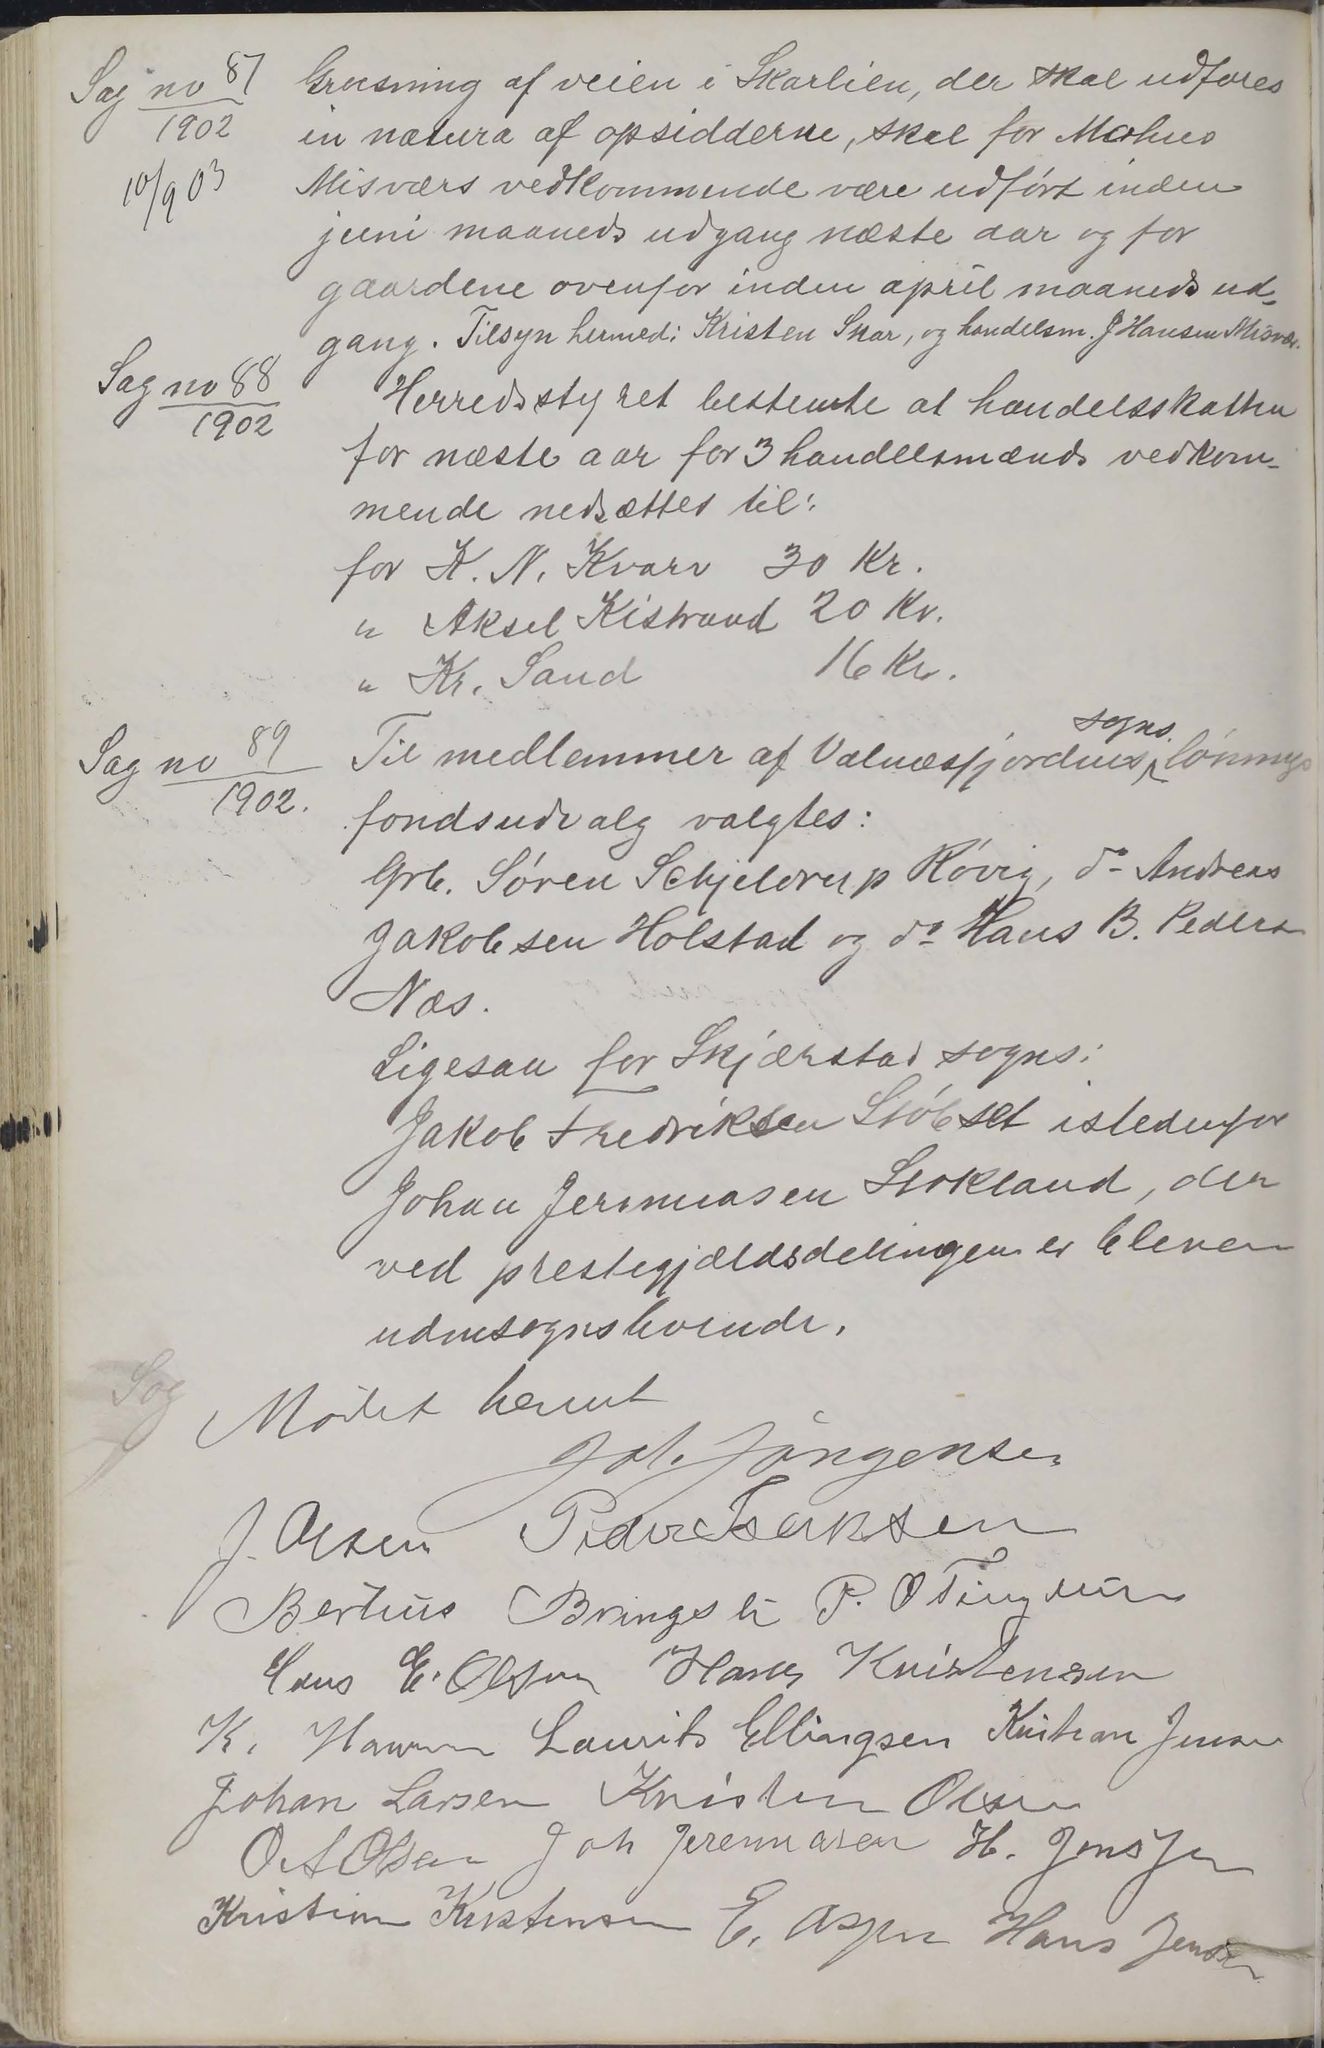 Sag no 87
1902
10/9 03
Grusning af veien i Skarlien, der skal udføres
in natura af opsidderne, skal for Mohus
Misværs vedkommende være udført inden
juni maaneds udgang næste aar og for
gaardene ovenfor inden april maaneds ud-
gang. Tilsyn hermed: Kristen Skar, og handelsm. J Hansen Misvær.
Sag no 88
1902
Herredsstyret bestemte at handelsskatten
for næste aar for 3 handelsmænds vedkom-
mende nedsættes til:
for K. N. Kvarv 30 Kr.
" Aksel Kistrand 20 Kr.
" Kr. Sand 16 Kr.
Sag no 89
1902.
Til medlemmer af Valnæsfjordens sogns lønnings
fondsudvalg valgtes:
Grb. Søren Schjelderup Røvig, do Andreas
Jakobsen Holstad og do Hans B. Peders
Næs.
Ligesaa for Skjærstad sogns:
Jakob Fredriksen Støbset istedenfor
Johan Jeremiasen Stokland, der
ved prestegjældsdelingen er bleven
udensognsboende.
Sag
Mødet hævet
Joh. Jörgensen
J. Olsen Peder Isaksen
Bertius Bringsli P. O Tingsten
Hans E. Olsen Hans Kristensen
K. Hansen Laurits Ellingsen Kristian Jensen
Johan Larsen Kristen Olsen
O. A Olsen Joh Jeremiasen H. Jensen
Kristian Kristensen E. Aspen Hans Jensen